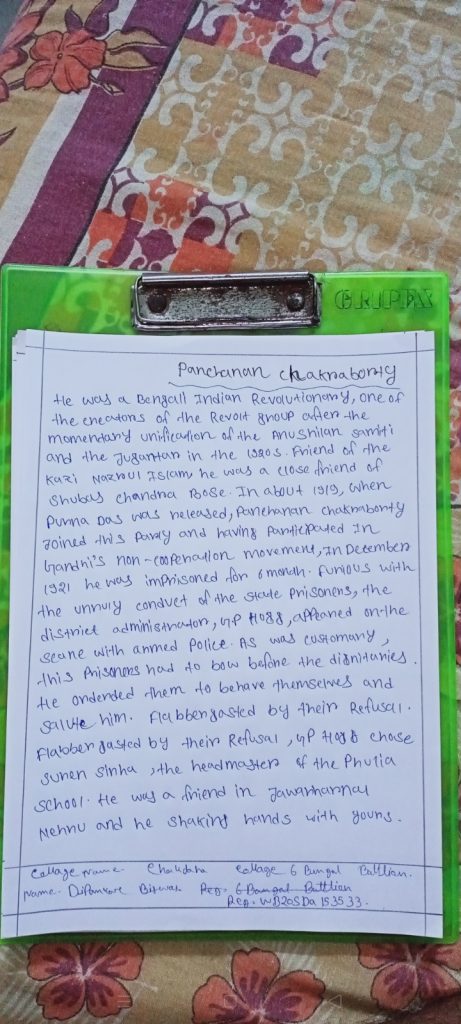 GRIPEX
Panchanan chakraborty
He was a Bengall Indian Revolutionary, one of
the creators of the Revolt group after the
momentary unification of the Anushilan samiti
and the Jugantar in the 1920s. Friend of the
Kazi Nazrul Islam, he was a close friend of
Shubas Chandra Bose. In about 1919, when
Purna Das was released, Panchanan chakraborty
Joined this Party and having Participated In
Gandhi's non-cooperation movement, In December
1921 he was imprisoned for 6 month. Furious with
the unruly conduct of the state Prisoners, the
district administrator, GP Hogg, appeared on the
scane with armed Police. As was customary,
this Prisoners had to bow before the dignitaries.
He ordered them to behave themselves and
salute him. Flabbergasted by their Refusal.
Flabbergasted by their Refusal, GP Hogg chose
suren sinha, the headmaster of the Phulia
school. He was a friend in Jawaharlal
Nehru and he shaking hands with yours.
Collage name. Chakdaha Collage 6 Bungal Battlian.
Name. Dipankore Biswas Reg. 6 Bangal Battlian
Reg. WB20SDA153533.